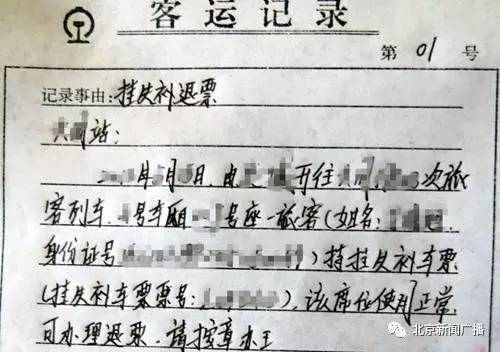 客运记录
第 01 号
记录事由:挂失补退票
站:
年 月 日,由 开往 次旅
客列车, 号车厢 号座一旅客(姓名:
身份证号 )持挂失补车票
(挂失补车票票号: ),该席位使用正常
可办理退票。请按章办理
北京新闻广播